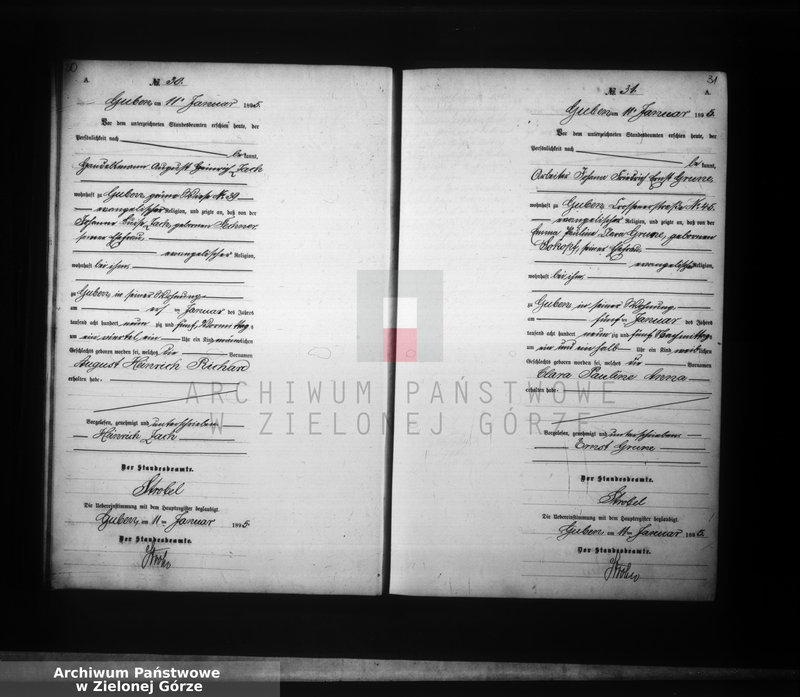 30
A.
№ 30.
Guben, am 11ten Januar 1895.
Vor dem unterzeichneten Standesbeamten erschien heute, der
Persönlichkeit nach
be kannt,
Handelsmann August Heinrich Zach
wohnhaft zu Guben, grüne Wiese Nr. 39
evangelischer Religion, und zeigte an, daß von der
Johanne Luise Zach, geborenen
seiner Ehefrau
evangelischer Religion,
wohnhaft bei ihm
zu Guben in seiner Wohnung
am ersten Januar des Jahres
tausend acht hundert neun zig und fünf Vormittags
um ein viertel ein Uhr ein Kind männlichen
Geschlechts geboren worden sei, welches die Vornamen
August Heinrich Richard
erhalten habe.
Vorgelesen, genehmigt und unterschrieben
Heinrich Zach
Der Standesbeamte.
Strobel
Die Uebereinstimmung mit dem Hauptregister beglaubigt.
Guben, am 11ten Januar 1895.
Der Standesbeamte.
31
№ 31.
A.
Guben, am 11ten Januar 1895.
Vor dem unterzeichneten Standesbeamten erschien heute, der
Persönlichkeit nach
be kannt,
Arbeiter Johann Friedrich Ernst Grune
wohnhaft zu Guben, Crossenerstraße Nr. 45
evangelischer Religion, und zeigte an, daß von der
Emma Pauline Clara Grune, geborenen
seiner Ehefrau
evangelischer Religion,
wohnhaft bei ihm
zu Guben, in seiner Wohnung
am fünften Januar des Jahres
tausend acht hundert neun zig und fünf Nachmittags
um ein und ein halb Uhr ein Kind weiblichen
Geschlechts geboren worden sei, welches die Vornamen
Clara Pauline Anna
erhalten habe.
Vorgelesen, genehmigt und unterschrieben
Ernst Grune
Der Standesbeamte.
Strobel
Die Uebereinstimmung mit dem Hauptregister beglaubigt.
Guben, am 11ten Januar 1895.
Der Standesbeamte.
ARCHIWUM PAŃSTWOWE
W ZIELONEJ GÓRZE
Archiwum Państwowe
w Zielonej Górze